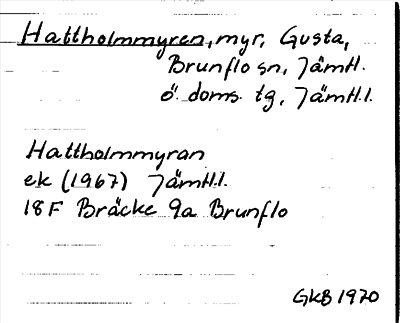 Hattholmmyren, myr, Gusta,
Brunflo sn, Jämtl.
ö. doms. tg, Jämtl.l.
Hattholmmyran
ek (1967) Jämtl.l.
18F Bräcke 9a Brunflo
GKB 1970